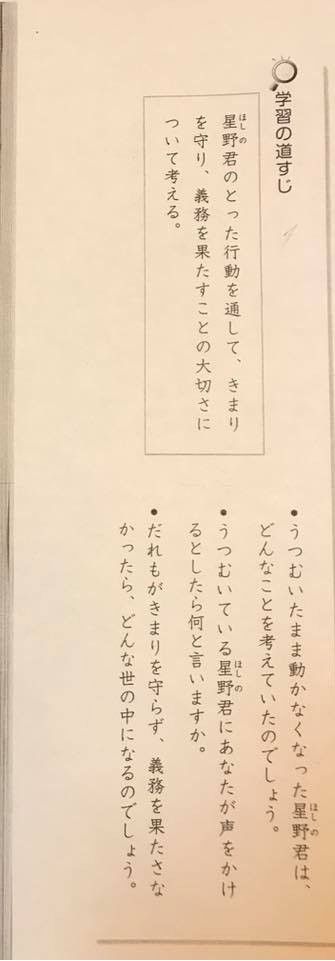 学習の道すじ
星野君のとった行動を通して、きまり
を守り、義務を果たすことの大切さに
ついて考える。
●うつむいたまま動かなくなった星野君は、
どんなことを考えていたのでしょう。
●うつむいている星野君にあなたが声をかけ
るとしたら何と言いますか。
●だれもがきまりを守らず、義務を果たさな
かったら、どんな世の中になるのでしょう。